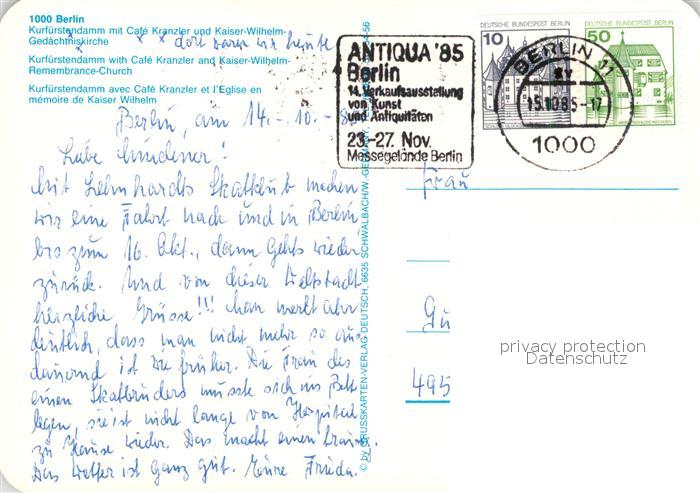 1000 Berlin
Kurfürstendamm mit Café Kranzler und Kaiser-Wilhelm-
Gedächtniskirche
x x dort waren wir heute
Kurfürstendamm with Café Kranzler and Kaiser-Wilhelm-
Remembrance-Church
Kurfürstendamm avec Café Kranzler et l'Eglise en
mémoire de Kaiser Wilhelm
Berlin, am 14.-10.-85
Liebe Mindener!
Mit Lehnhardts Skatklub machen
wir eine Fahrt nach und in Berlin
bis zum 16. Okt., dann gehts wieder
zurück. Und von dieser Weltstadt
herzliche Grüsse!!! Man merkt aber
deutlich, dass man nicht mehr so aus
dauernd ist wie früher. Die Frau des
einen Skatbruders musste sich ins Bett
legen, sie ist nicht lange vom Hospital
zu Hause wieder. Das macht einen
Das Wetter ist ganz gut. Eure Frieda.
© by KRUSSKARTEN-VERLAG DEUTSCH, 6635 SCHWALBACH/W.-GERMANY
ANTIQUA '85
Berlin
14. Verkaufsausstellung
von Kunst
und Antiquitäten
23.-27. Nov.
Messegelände Berlin
DEUTSCHE BUNDESPOST BERLIN
10
DEUTSCHE BUNDESPOST BERLIN
50
BERLIN 11
15.10.85-17
1000
Frau
Gu
495
privacy protection
Datenschutz